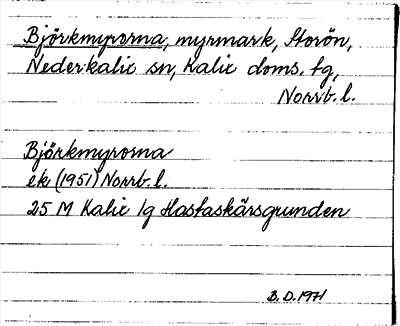 Björkmyrorna, myrmark, Storön,
Nederkalix sn, Kalix doms. tg,
Norrb. l.
Björkmyrorna
ek (1951) Norrb. l.
25 M Kalix 1g Hastaskärsgrunden
B. D. 1971